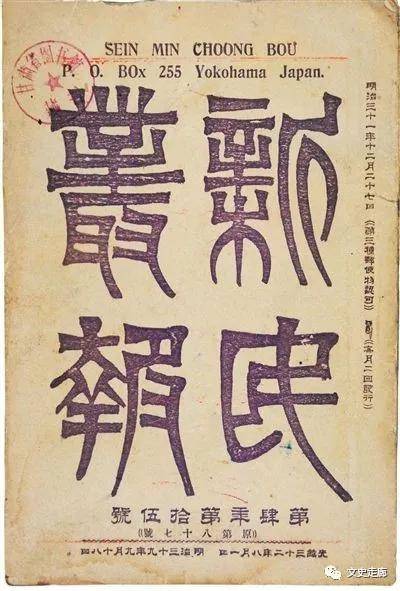 SEIN MIN CHOONG BOU
P. O. BOx 255 Yokohama Japan.
明治三十一年十二月二十七日(第三種郵便物認可)(每月二回發行)
新民
叢報
第肆年第拾伍號
(原第八十七號)
光緒三十二年八月一日 明治三十九年九月十八日
文史走廊